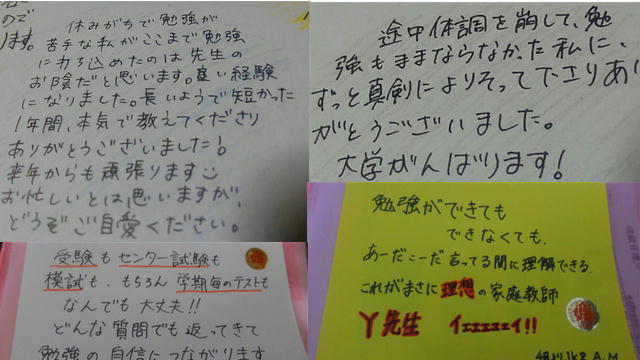 ので
ます。
休みがちで勉強が
苦手な私がここまで勉強
に打ち込めたのは先生の
お陰だと思います。良い経験
になりました。長いようで短かった
1年間、本気で教えてくださり
ありがとうございました!
来年からも頑張ります
お忙しいとは思いますが、
どうぞご自愛ください。
途中体調を崩して、勉
強もままならなかった私に、
ずっと真剣によりそって下さりあり
がとうございました。
大学がんばります!
受験もセンター試験も
模試も、もちろん学期毎のテストも
なんでも大丈夫!!
どんな質問でも返ってきて
勉強の自信につながります
勉強ができても
できなくても、
あーだこーだ言ってる間に理解できる
これがまさに理想の家庭教師
Y先生 イェェェェェイ!!
A.M